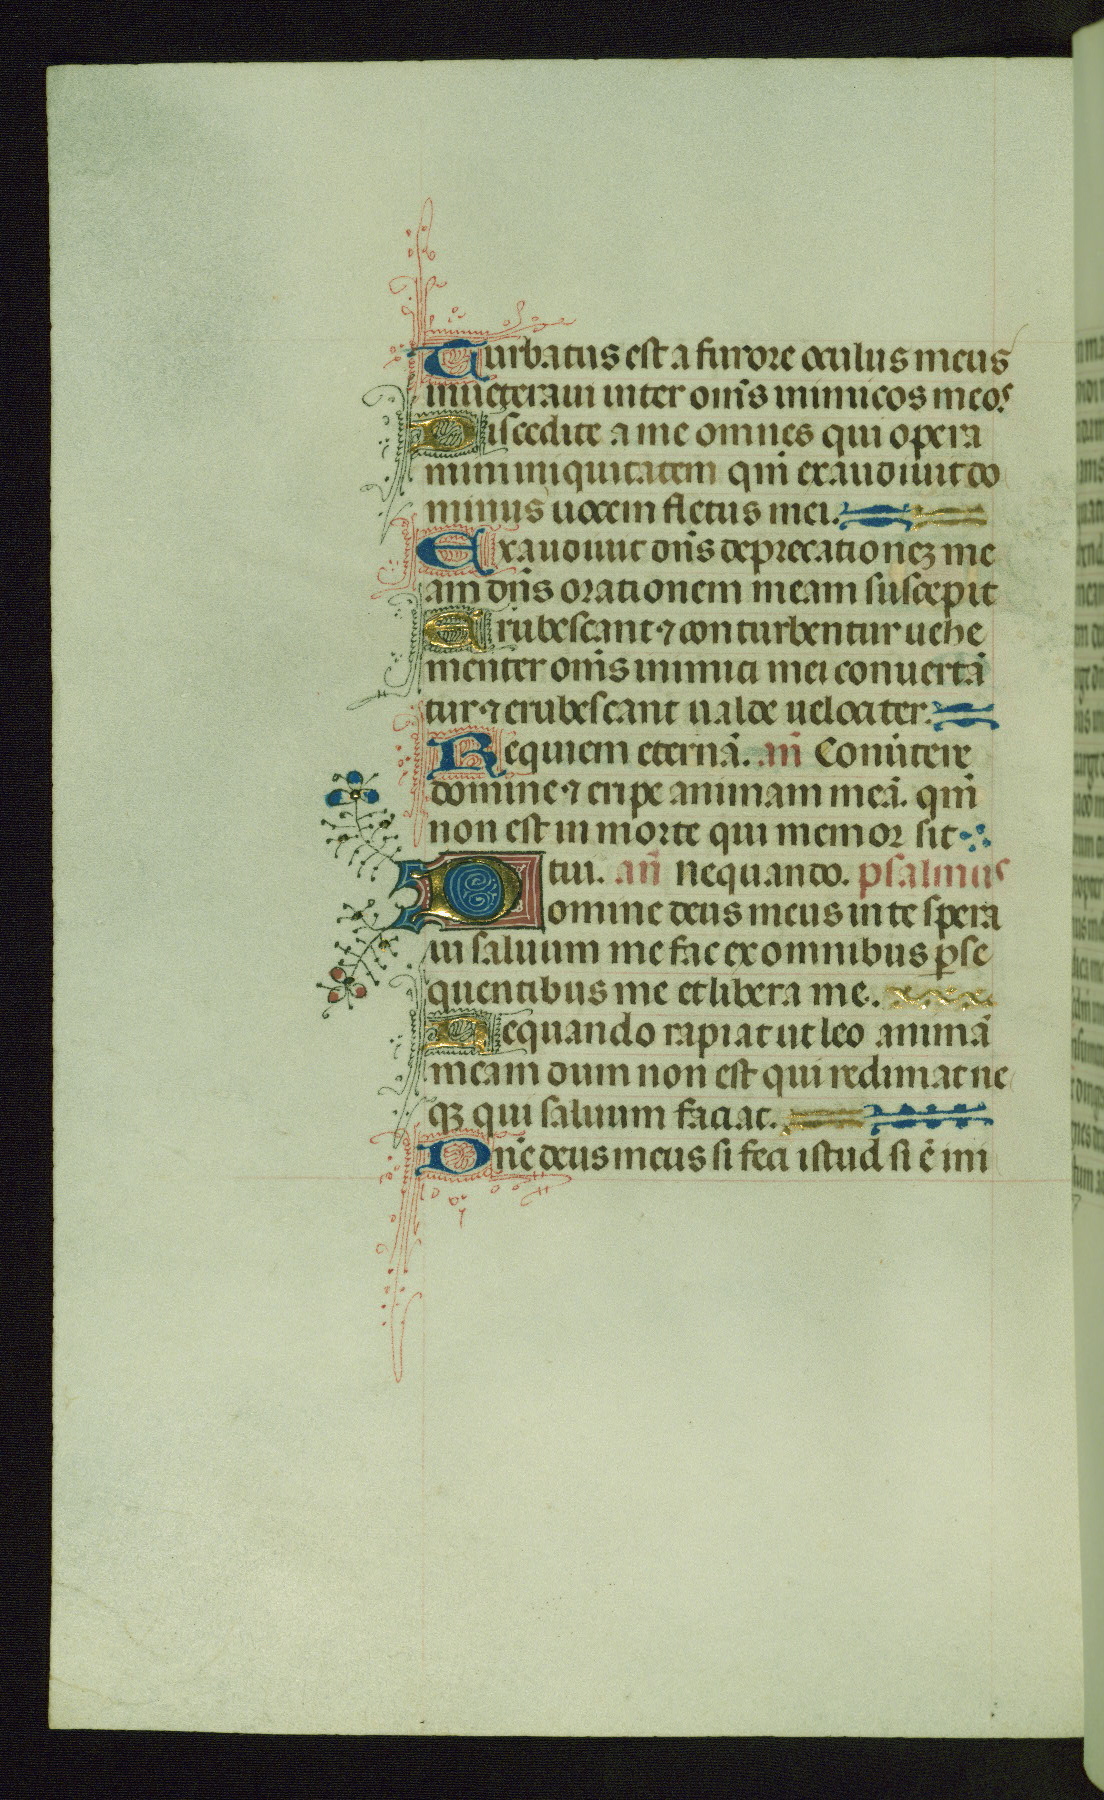 Turbatus est a furore oculus meus
inueteraui inter om̄s inimicos meos
Discedite a me omnes qui opera
mini iniquitatem qm̄ exaudiuit do
minus uocem fletus mei.
Exaudiuit dn̄s deprecationeꝫ me
am dn̄s orationem meam suscepit
Erubescant ⁊ conturbentur uehe
menter om̄s inimici mei conuertā
tur ⁊ erubescant ualde uelociter.
Requiem eternā. an̄ Conūtere
domine ⁊ eripe animam meā. qm̄
non est in morte qui memor sit
tui. an̄ nequando. psalmus
Domine deus meus in te spera
ui saluum me fac ex omnibus ꝑse
quentibus me et libera me.
Nequando rapiat ut leo animā
meam dum non est qui redimat ne
qꝫ qui saluum faciat.
Dn̄e deus meus si feci istud si ē ini